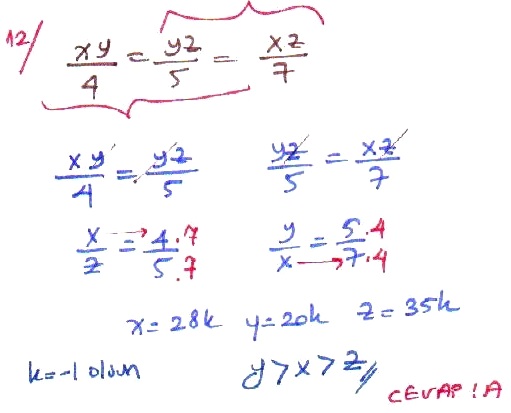 12/ xy/4 = yz/5 = xz/7
xy/4 = yz/5   yz/5 = xz/7
x/z = 4.7/5.7   y/x = 5.4/7.4
x=28k y=20k z=35k
k=-1 olsun y>x>z //
CEVAP:A